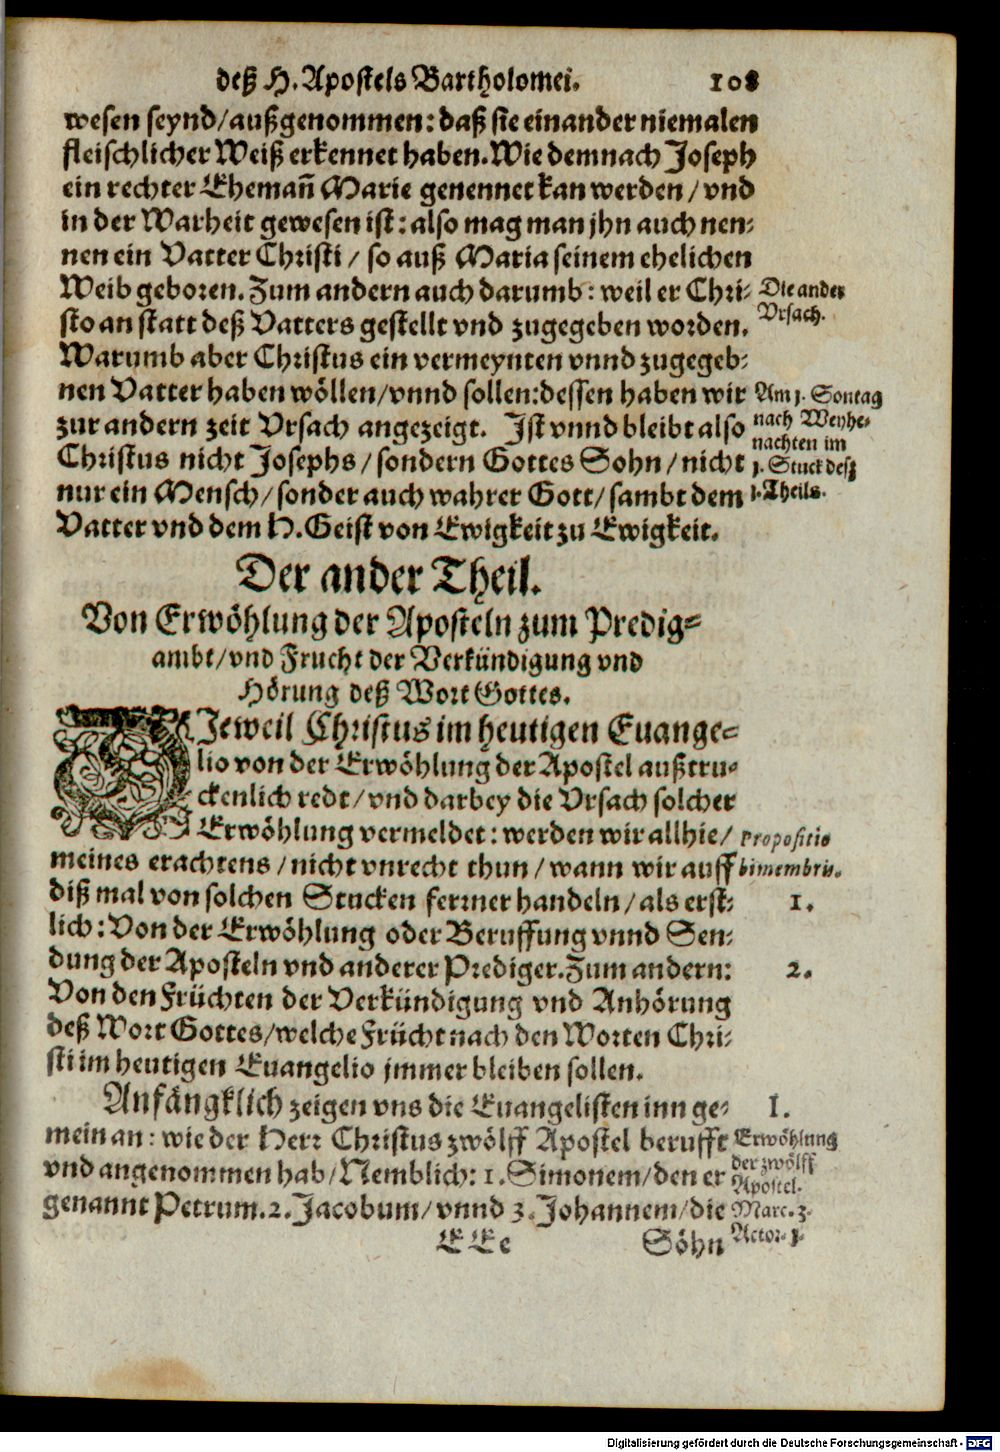 deß H. Apostels Bartholomei. 108
wesen seynd/außgenommen: daß sie einander niemalen
fleischlicher Weiß erkennet haben. Wie demnach Joseph
ein rechter Ehemañ Marie genennet kan werden/vnd
in der Warheit gewesen ist: also mag man jhn auch nen-
nen ein Vatter Christi/so auß Maria seinem ehelichen
Weib geboren. Zum andern auch darumb: weil er Chri-
sto an statt deß Vatters gestellt vnd zugegeben worden.
Die ander
Vrsach.
Warumb aber Christus ein vermeynten vnnd zugegeb-
nen Vatter haben wöllen/vnnd sollen: dessen haben wir
zur andern zeit Vrsach angezeigt. Ist vnnd bleibt also
Christus nicht Josephs/sondern Gottes Sohn/nicht
nur ein Mensch/sonder auch wahrer Gott/sambt dem
Vatter vnd dem H. Geist von Ewigkeit zu Ewigkeit.
Am 1. Sontag
nach Weyhe-
nachten im
1. Stuck deß
1. Theils.
Der ander Theil.
Von Erwöhlung der Aposteln zum Predig-
ambt/vnd Frucht der Verkündigung vnd
Hörung deß Wort Gottes.
DJeweil Christus im heutigen Euange-
lio von der Erwöhlung der Apostel außtru-
ckenlich redt/vnd darbey die Vrsach solcher
Erwöhlung vermeldet: werden wir allhie/
meines erachtens/nicht vnrecht thun/wann wir auff
Propositio
bimembris.
diß mal von solchen Stucken ferrner handeln/als erst- 1.
lich: Von der Erwöhlung oder Beruffung vnnd Sen-
dung der Aposteln vnd anderer Prediger. Zum andern: 2.
Von den Früchten der Verkündigung vnd Anhörung
deß Wort Gottes/welche Frücht nach den Worten Chri-
sti im heutigen Euangelio jmmer bleiben sollen.
Anfängklich zeigen vns die Euangelisten inn ge- I.
mein an: wie der Herr Christus zwölff Apostel berufft
vnd angenommen hab/Nemblich: 1. Simonem/den er
genannt Petrum. 2. Jacobum/vnnd 3. Johannem/die
Erwöhlung
der zwölff
Apostel.
Marc. 3.
Actor. 1.
EEe Söhn
Digitalisierung gefördert durch die Deutsche Forschungsgemeinschaft - DFG